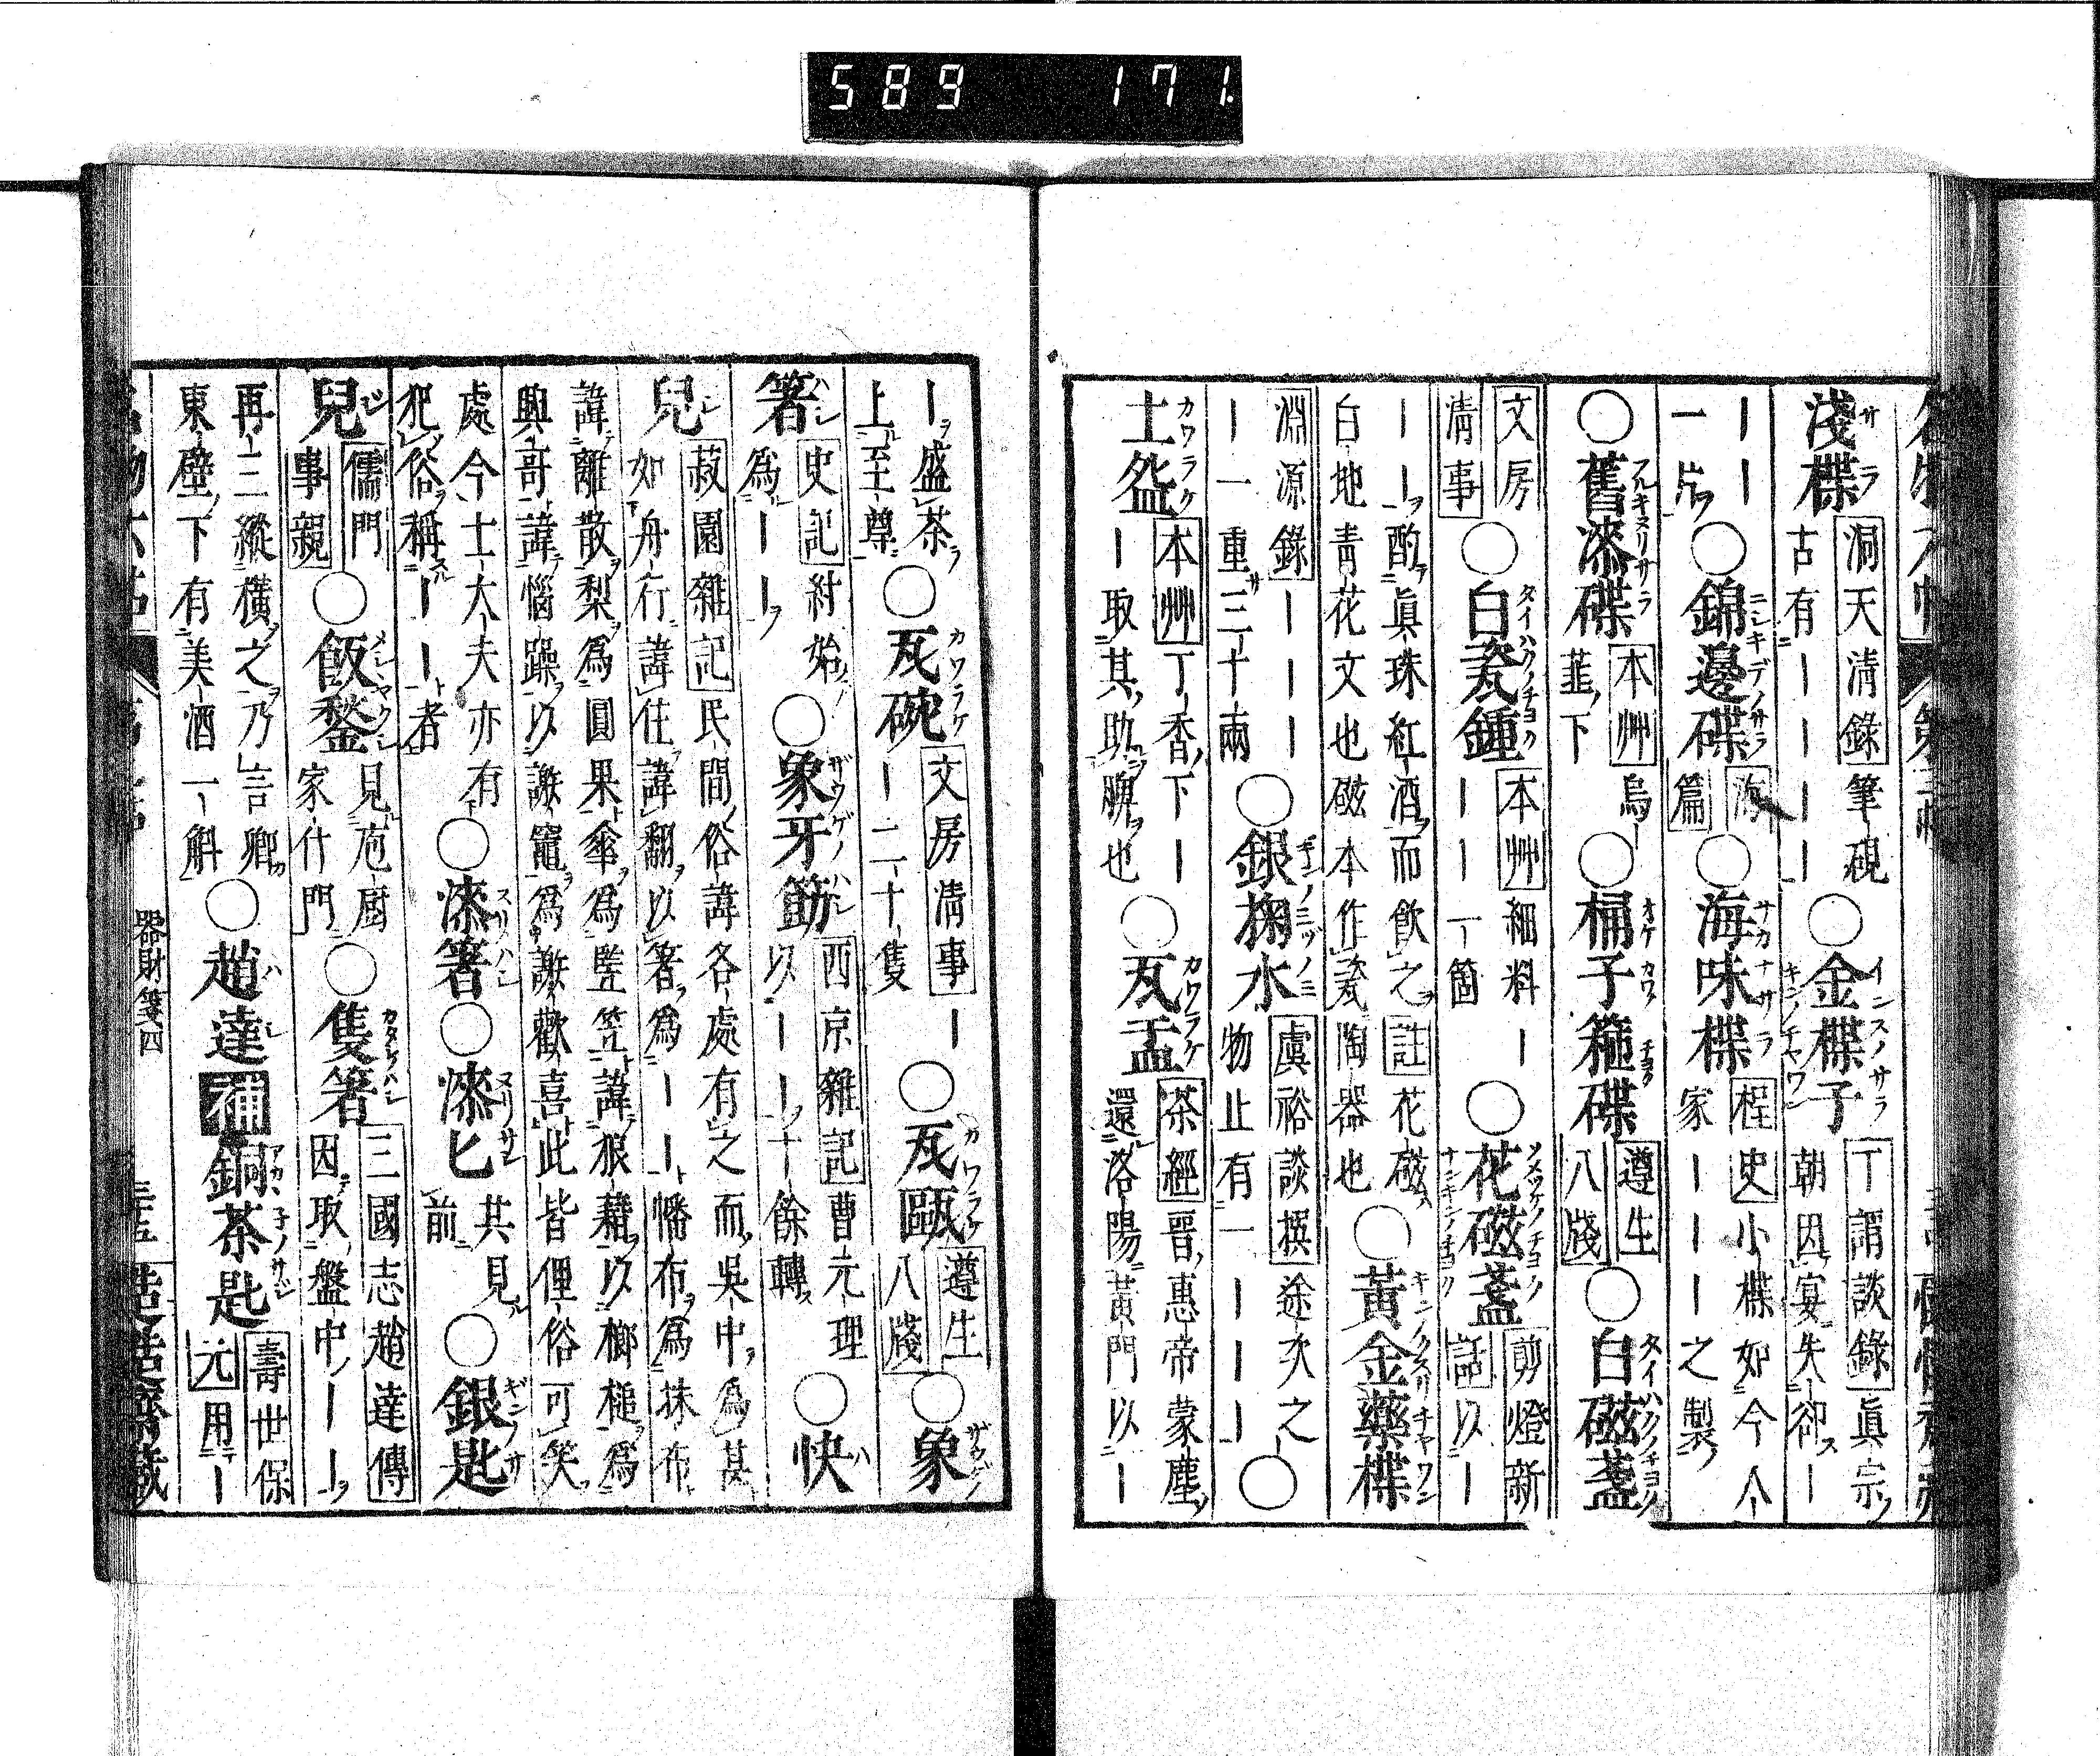 589 171.
淺楪 洞天清錄 筆硯
古有一一一一 ○金楪子 丁謂談錄 眞宗
朝因宴失卻一
一一一片 ○錦邊碟 海篇 ○海味楪 桯史 小楪如今人
家一一一之製
○舊漆碟 本艸 烏一
韮下 ○桶子箍碟 遵生八牋 ○白磁盞
文房清事 ○白瓷鍾 本艸 細料一
一一一箇 ○花磁盞 剪燈新話 以一
一一酌眞珠紅酒而飲之 註 花磁
白地青花文也磁本作瓷陶器也 ○黃金藥楪
淵源錄 一一一
一一重三十兩 ○銀掬水 虞裕談撰 途次之
物止有一一一一 ○
土㿿 本艸 丁香下一
一取其助脾也 ○瓦盂 茶經 晉惠帝蒙塵
還洛陽黃門以一
一盛茶
上至尊 ○瓦碗 文房清事 一
一二十隻 ○瓦甌 遵生八牋 ○象
箸 史記 紂始
爲一一 ○象牙筯 西京雜記 曹元理
以一一十餘轉 ○快
兒 菽園雜記 民間俗諱各處有之而吳中爲甚
如舟行諱住諱翻以箸爲一一幡布爲抹布
諱離散梨爲圓果傘爲竪笠諱狼藉以榔槌爲
興哥諱惱躁以謝竈爲謝歡喜此皆俚俗可笑
處今士大夫亦有
犯俗稱一一者 ○漆箸 ○漆匕 共見前 ○銀匙
兒 儒門事親 ○飯鍫 見庖厨
家什門 ○隻箸 三國志趙達傳
因取盤中一一
再三縱橫之乃言卿
東壁下有美酒一斛 ○趙達 補 銅茶匙 壽世保元 用一
器財箋四